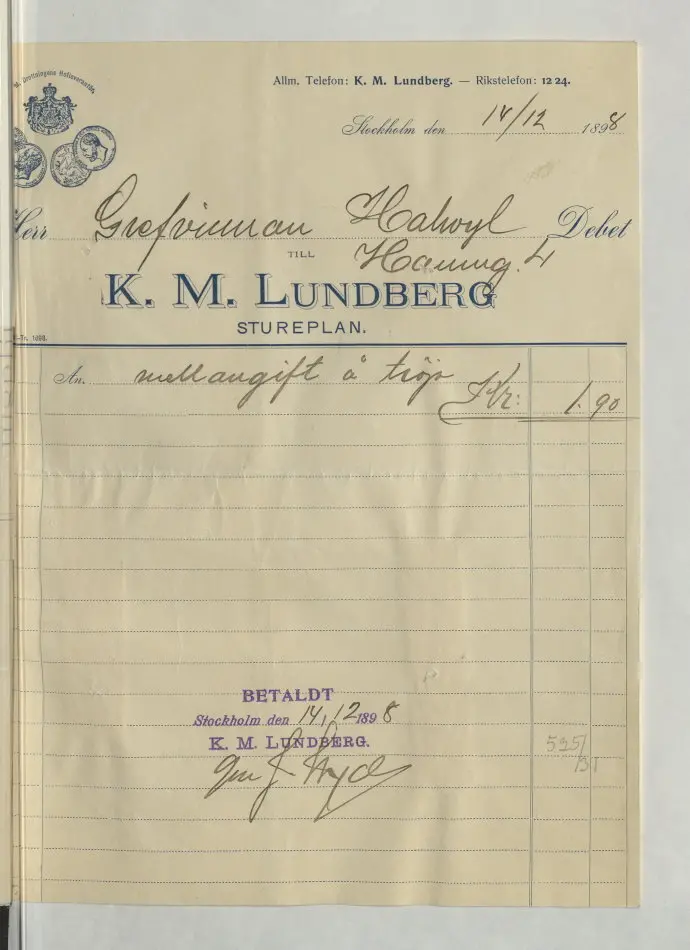 M. Drottningens Hofleverantör
Allm. Telefon: K. M. Lundberg. — Rikstelefon: 12 24.
Stockholm den 14/12 1898
Herr Grefvinnan Halwyl Debet
TILL Hamng. 4
K. M. LUNDBERG
STUREPLAN.
Tr. 1898.
An. mellangift å tröja Kr: 1.90
BETALDT
Stockholm den 14/12 1898
K. M. LUNDBERG.
gm J.
535/